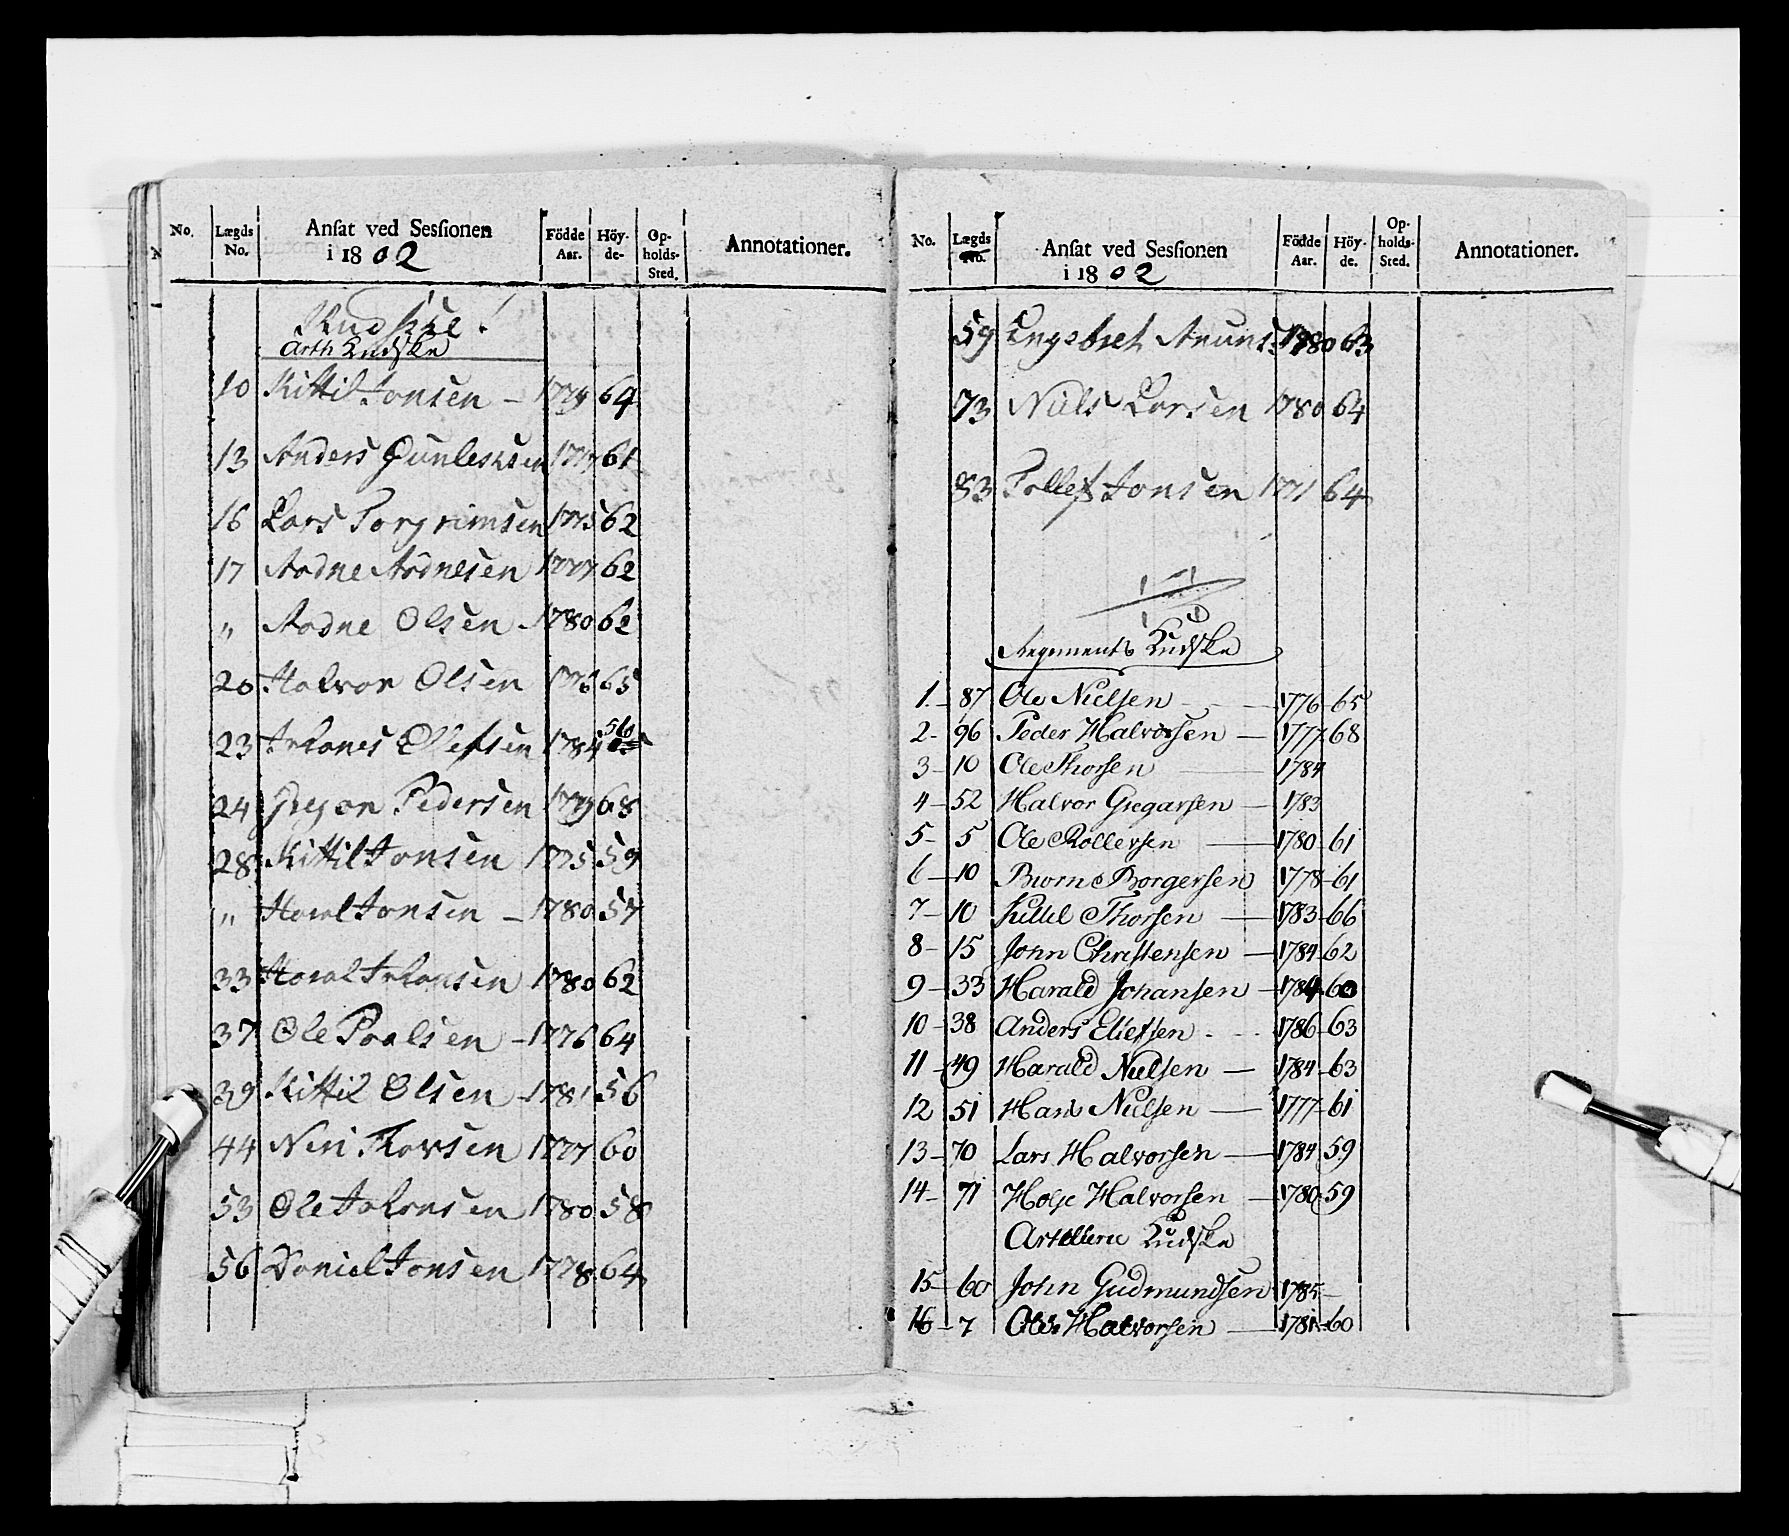 No. Lægds No. Ansat ved Sessionen i 1802 Födde Aar. Höy- de- Op- holds- Sted. Annotationer.
Kudske
Arth Kudske
10 Kittil Jonsen 1779 64
13 Anders Gunlesksen 1777 61
16 Lars Torgrimsen 1775 62
17 Aadne Aadnesen 1777 62
" Aadne Olsen 1780 62
20 Halvor Olsen 1776 65
23 Johanes Ellefsen 1784 56
24 Gregor Pedersen 1779 68
28 Kittil Jonsen 1775 59
" Haral Jonsen 1780 57
33 Haral Johansen 1780 62
37 Ole Paalsen 1776 64
39 Kittil Olsen 1781 56
44 Neri Thorsen 1777 60
53 Ole Johansen 1780 58
56 Daniel Jonsen 1778 64
No. Lægds No. Ansat ved Sessionen i 1802 Födde Aar. Höy- de. Op- holds- Sted. Annotationer.
59 Engebret Anuns 1780 63
73 Niels Larsen 1780 64
83 Tollef Jonsen 1771 64
Regements Kudske
1 - 87 Ole Nielsen - 1776 - 65
2 - 96 Peder Halvorsen - 1777 68
3 - 10 Ole Thorsen - 1784
4 - 52 Halvor Gregarsen - 1783
5 - 5 Ole Rollersen - 1780 - 61
6 - 10 Biørn Borgersen 1778 - 61
7 - 10 Kittil Thorsen - 1783 - 66
8 - 15 John Christensen - 1784 - 62
9 - 33 Harald Johansen - 1784 - 60
10 - 38 Anders Eliefsen - 1786 - 63
11 - 49 Harald Nielsen - 1784 - 63
12 51 Hans Nielsen - 1777 - 61
13 - 70 Lars Halvorsen - 1784 - 59
14 - 71 Holje Halvorsen - 1780 - 59
Artellerie Kudske
15 - 60 John Gudmundsen 1785 -
16 - 7 Ole Halvorsen - 1781 - 60